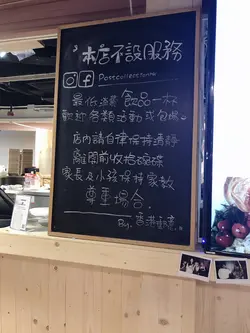 本店不設服務
最低消費飲品一杯
歡迎各類活動或包場。
店內請自律保持清靜
離開前收拾碗碟
家長及小孩保持家教
尊重場合.
By.